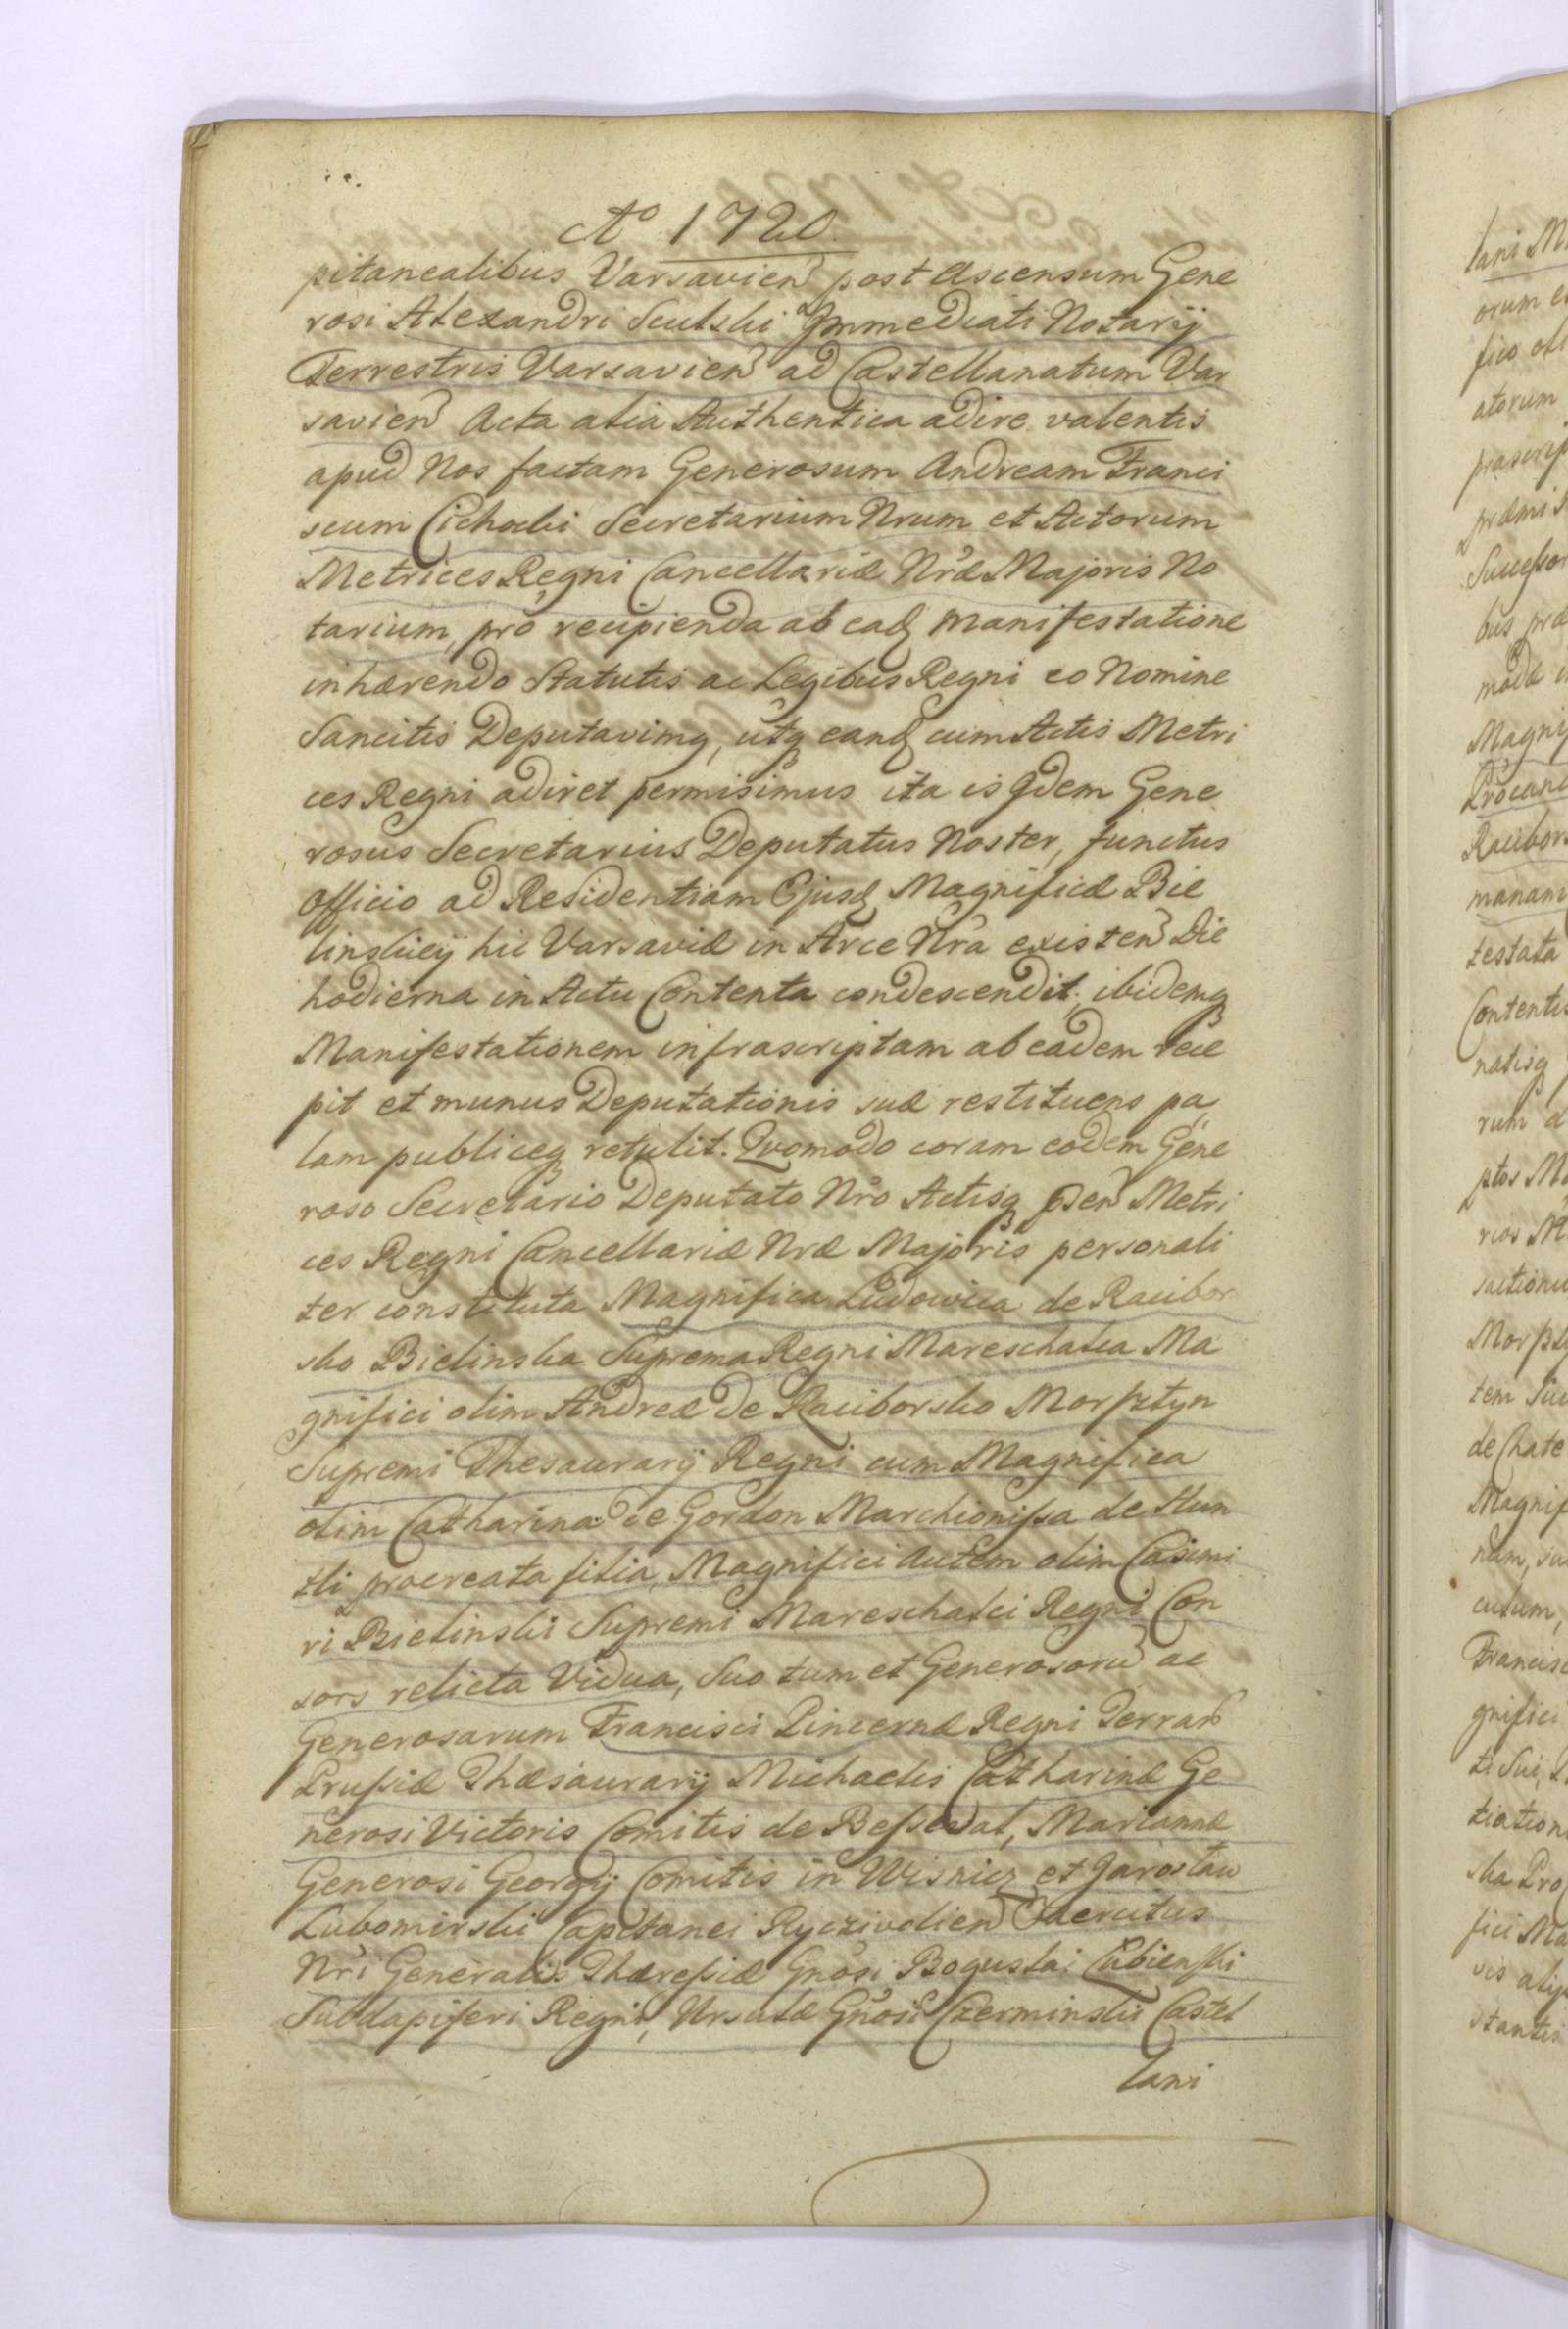 Aº 1720.
pitanealibus Varsavien post Ascensum Gene
rosi Alexandri Szulski Immediati Notarij
Terrestris Varsavien ad Castellanatum Var
savien Acta alia Authentica adire valentis
apud Nos factam Generosum Andream Franci
scum Cichocki Secretarium Nrum et Actorum
Metrices Regni Cancellariæ Nræ Majoris No
tarium, pro recipienda ab eadq manifestatione
inhærendo Statutis ac Legibus Regni eo Nomine
Sancitis Deputavimq, utq eandq cum Actis Metri
ces Regni adiret permisimus ita is qdem Gene
rosus Secretarius Deputatus Noster, functus
officio ad Residentiam Ejusdq Magnificæ Bie
linskiey hic Varsaviæ in Arce Nra existen Die
hodierna in Actu Contenta condescendit, ibidemq
Manifestationem infrascriptam ab eadem rece
pit et munus Deputationis suæ restituens pa
lam publiceq retulit. Quomodo coram eodem Gene
roso Secretario Deputato Nro Actisq psen Metri
ces Regni Cancellariæ Nræ Majoris personali
ter constituta Magnifica Ludowica de Racibor
sko Bielinska Suprema Regni Mareschalca Ma
gnifici olim Andreæ de Raciborsko Morsztyn
Supremi Thesaurarij Regni cum Magnifica
olim Catharina de Gordon Marchionissa de Hun
tli procreata filia, Magnifici autem olim Casimi
ri Bielinski Supremi Mareschalci Regni Con
sors relicta Vidua, Suo tum et Generosoru ac
Generosarum Francisci Pincernæ Regni Terrar
Prussiæ Thæsaurarij Michaelis Catharinæ Ge
nerosi Victoris Comitis de Bessewal, Mariannæ
Generosi Georgij Comitis in Wisnicz et Jaroslaw
Lubomirski Capitanei Ryczivolien Exercitus
Nri Generalis Thæresiæ Gnosi Boguslai Lubienski
Subdapiferi Regni, Ursulæ Gnosi Czerminski Castel
lani
lani M
fico
atorum
Succeſsor
bus præ
Magnif
manam
testata
Contentis
natisq
rum
ptos
tem
de Chate
Magnif
nam,
Francisc
gnifici
ti Sui,
tiation
fici Ma
vis
stantis